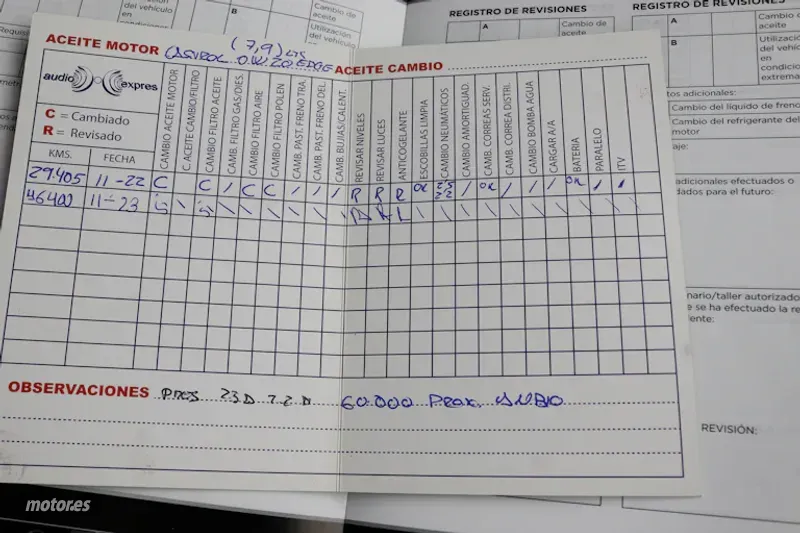 del vehículo
en
condiciones
Cambio de
aceite
Utilización
del vehículo
en
B
REGISTRO DE REVISIONES
A
Cambio de
aceite
REGISTRO DE REVISIONES
A
Cambio d
aceite
B
Utilizació
del vehíc
en
condicion
extrema
tos adicionales:
Cambio del líquido de freno
Cambio del refrigerante del
motor
aje:
adicionales efectuados o
dados para el futuro:
nario/taller autorizado
e se ha efectuado la re
ente:
REVISIÓN:
ACEITE MOTOR (7,9) LTS
CASTROL 0W20 EDGE
ACEITE CAMBIO
audio expres
C = Cambiado
R = Revisado
KMS. FECHA
CAMBIO ACEITE MOTOR
C. ACEITE CAMBIO/FILTRO
CAMBIO FILTRO ACEITE.
CAMB. FILTRO GAS/DIES.
CAMBIO FILTRO AIRE
CAMBIO FILTRO POLEN
CAMB. PAST. FRENO TRA.
CAMB. PAST. FRENO DEL.
CAMB. BUJIAS/CALENT.
REVISAR NIVELES
REVISAR LUCES
ANTICOGELANTE
ESCOBILLAS LIMPIA
CAMBIO NEUMÁTICOS
CAMBIO AMORTIGUAD.
CAMB. CORREAS SERV.
CAMB. CORREA DISTRI.
CAMBIO BOMBA AGUA
CARGAR A/A
BATERIA
PARALELO
ITV
29.405 11-22 C C / C C / / / R R R OK 2,5 2,2 / OK / / / OK / /
46400 11-23
OBSERVACIONES PRES 2.3 D 2.2 D 60.000 PROX. CAMBIO
motor.es